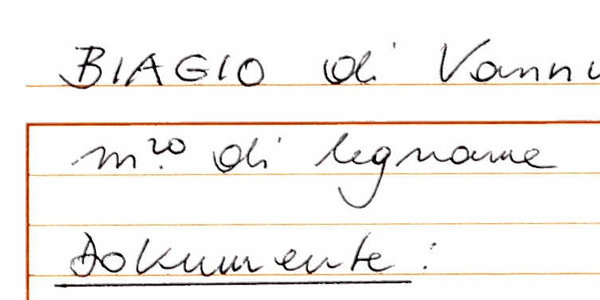 BIAGIO di Vannu
m.ro di legname
Dokumente: